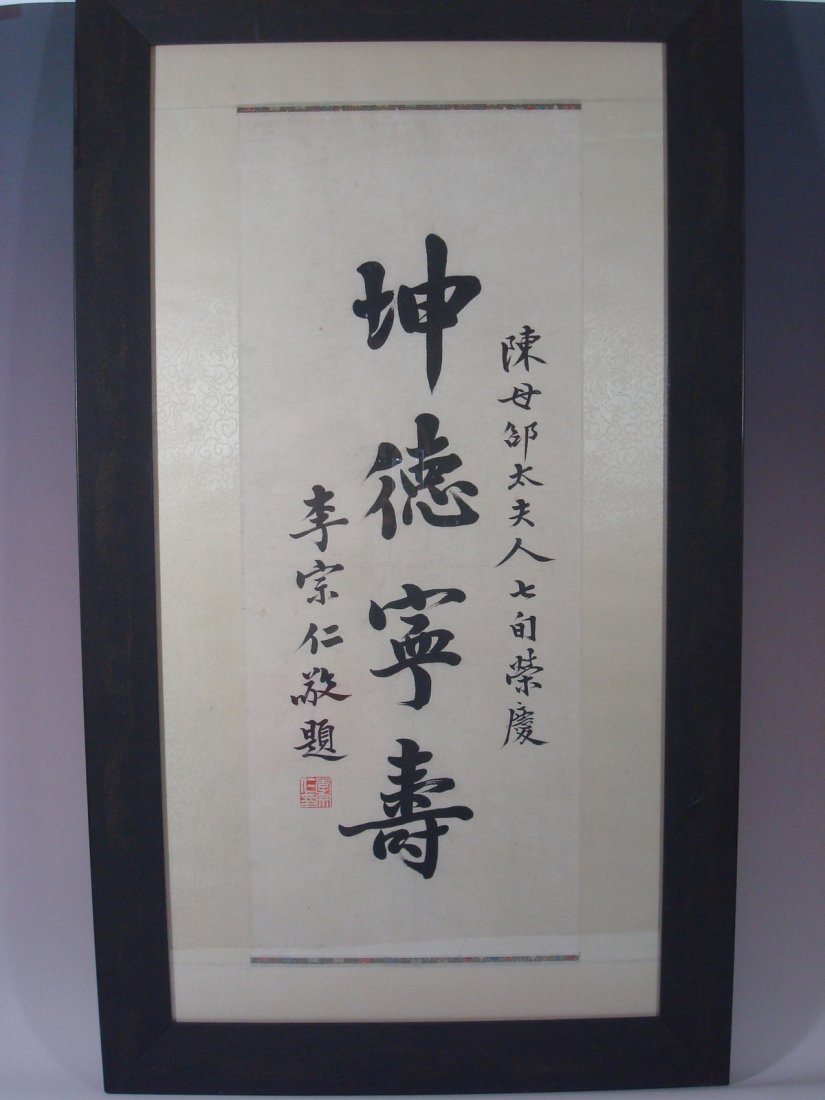 陳母邵太夫人七旬榮慶
坤德寧壽
李宗仁敬題